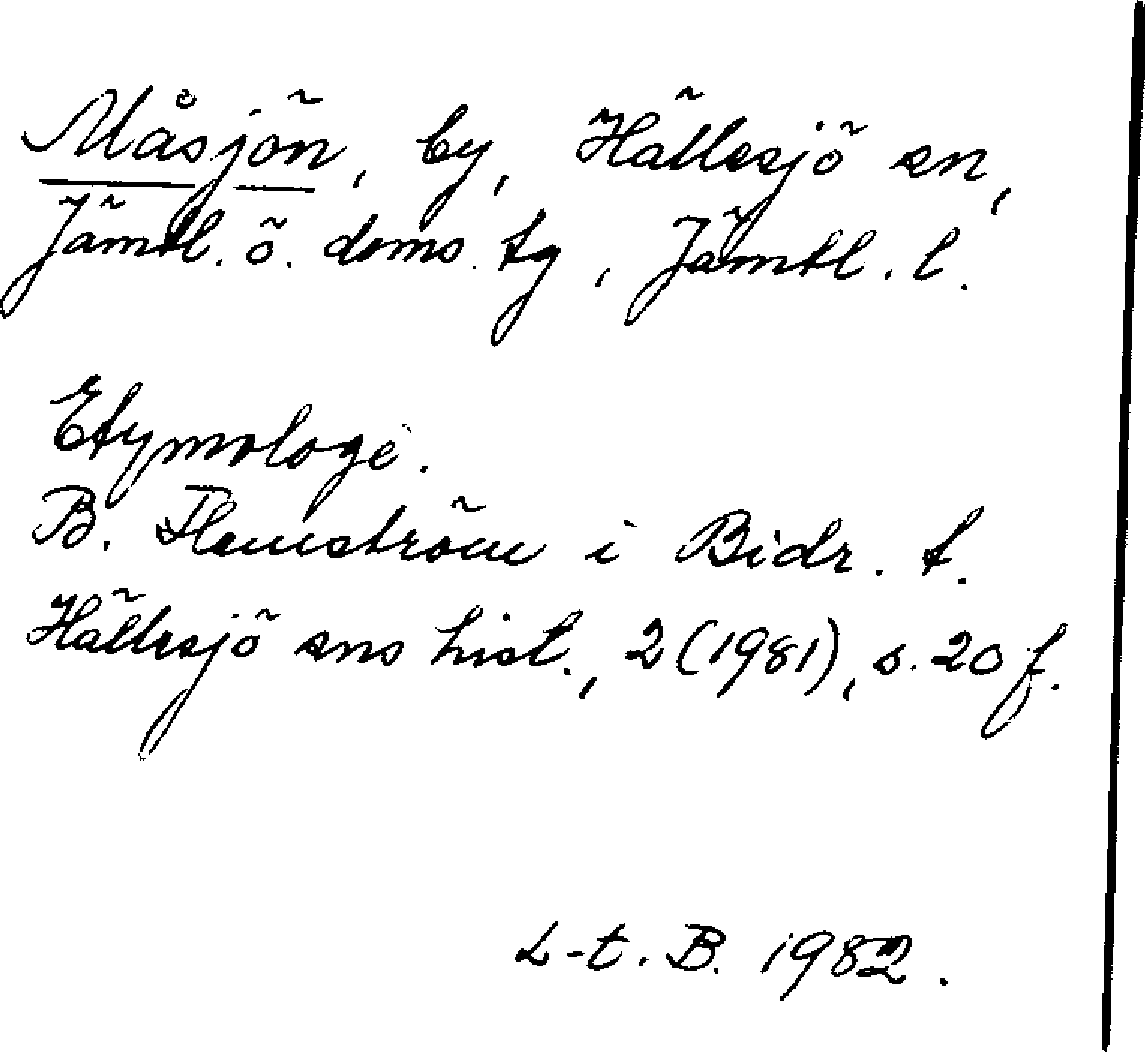 Måsjön, by, Hällesjö sn,
Jämtl. ö. doms. tg, Jämtl. l.
Etymologi.
B. Flemström i Bidr. t.
Hällesjö sns hist., 2 (1981), s. 20 f.
L-t. B. 1982.